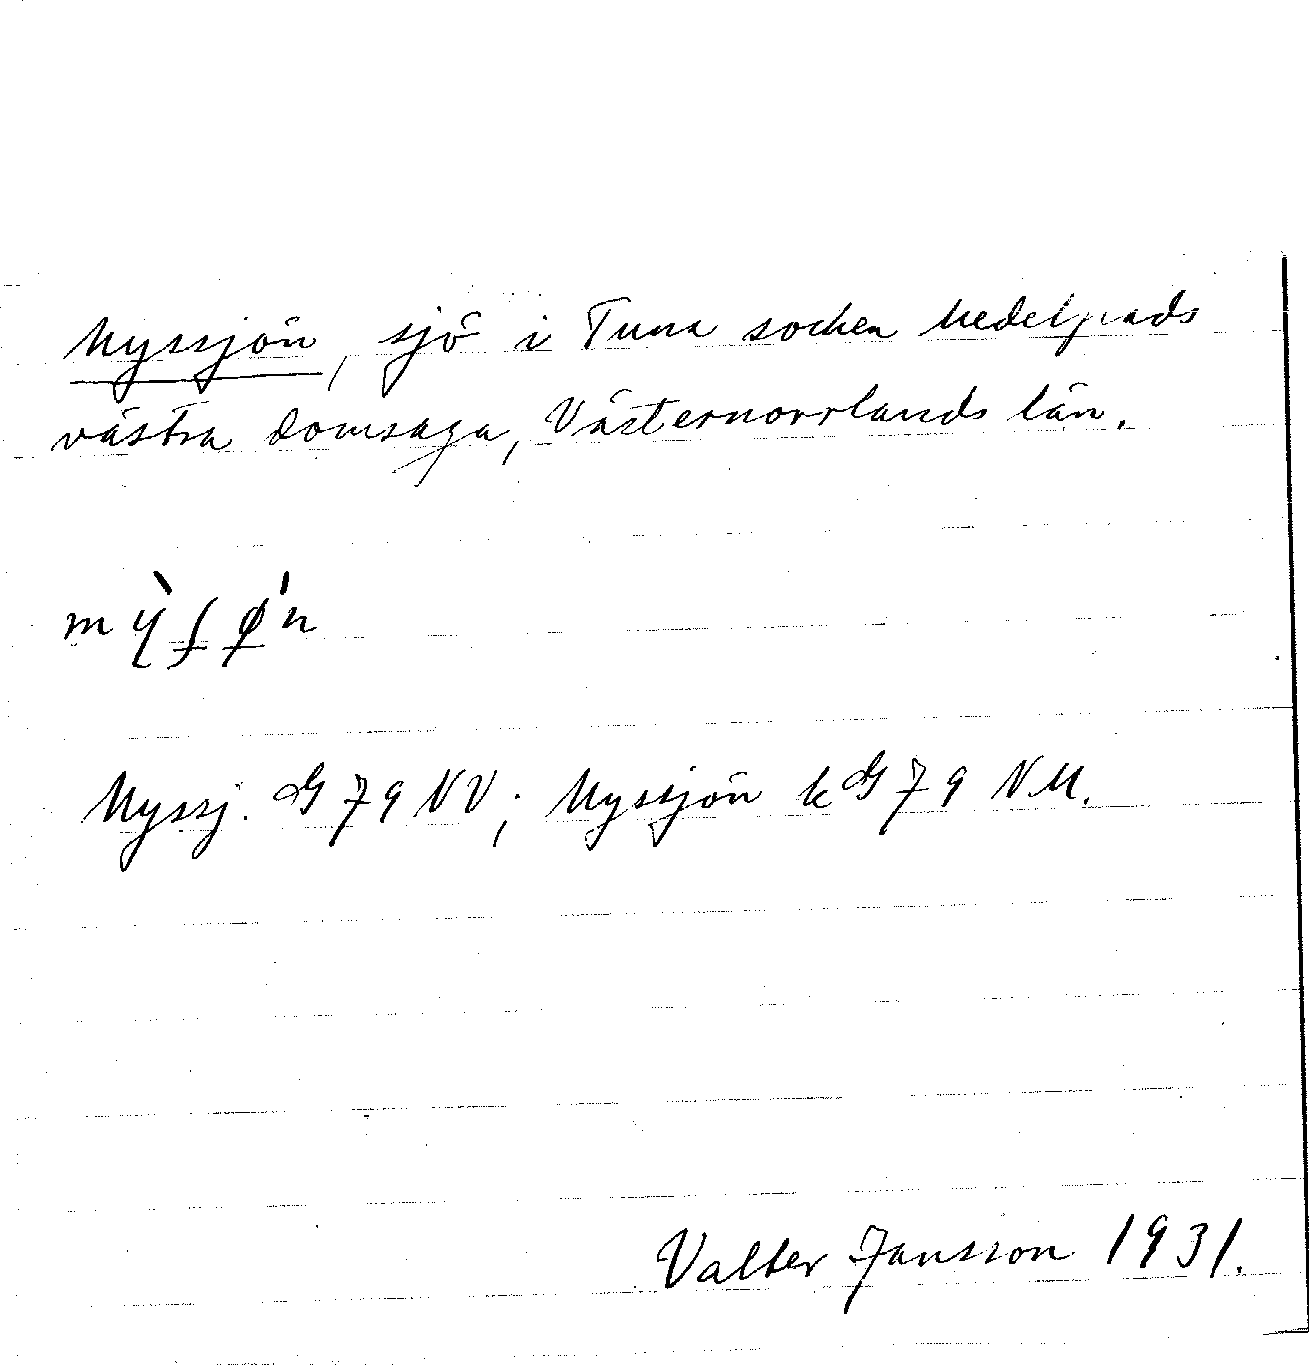 Myssjön, sjö i Tuna socken Medelpads
västra domsaga, Västernorrlands län.
mỳʃǿn
Myssj. G 79 NV; Myssjön k G 79 NM.
Valter Jansson 1931.